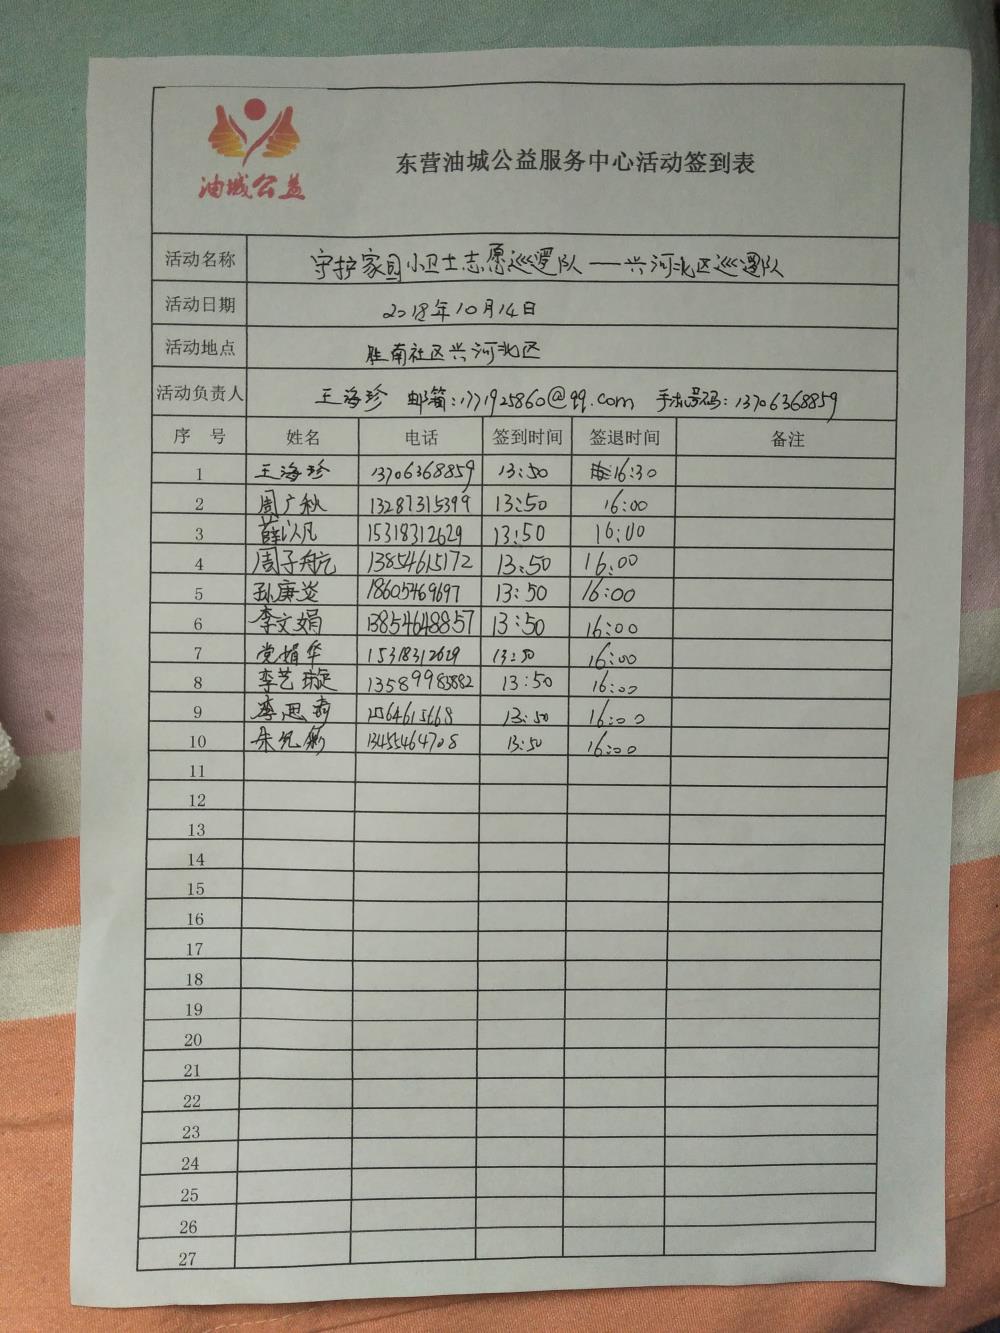 油城公益
东营油城公益服务中心活动签到表
活动名称 守护家园小卫士志愿巡逻队——兴河北区巡逻队
活动日期 2018年10月14日
活动地点 胜南社区兴河北区
活动负责人 王海珍 邮箱:1771925860@qq.com 手机号码:13706368859
序 号 姓名 电话 签到时间 签退时间 备注
1 王海珍 13706368859 13:50 16:30
2 周广秋 13287315399 13:50 16:00
3 薛以凡 15318312629 13:50 16:00
4 周子舟 13854615172 13:50 16:00
5 孙庚炎 18605469697 13:50 16:00
6 李文娟 13854648857 13:50 16:00
7 党娟华 15318312629 13:50 16:00
8 李艺璇 13589985882 13:50 16:00
9 李思 13:50 16:00
10 朱 13455464708 13:50 16:00
11
12
13
14
15
16
17
18
19
20
21
22
23
24
25
26
27